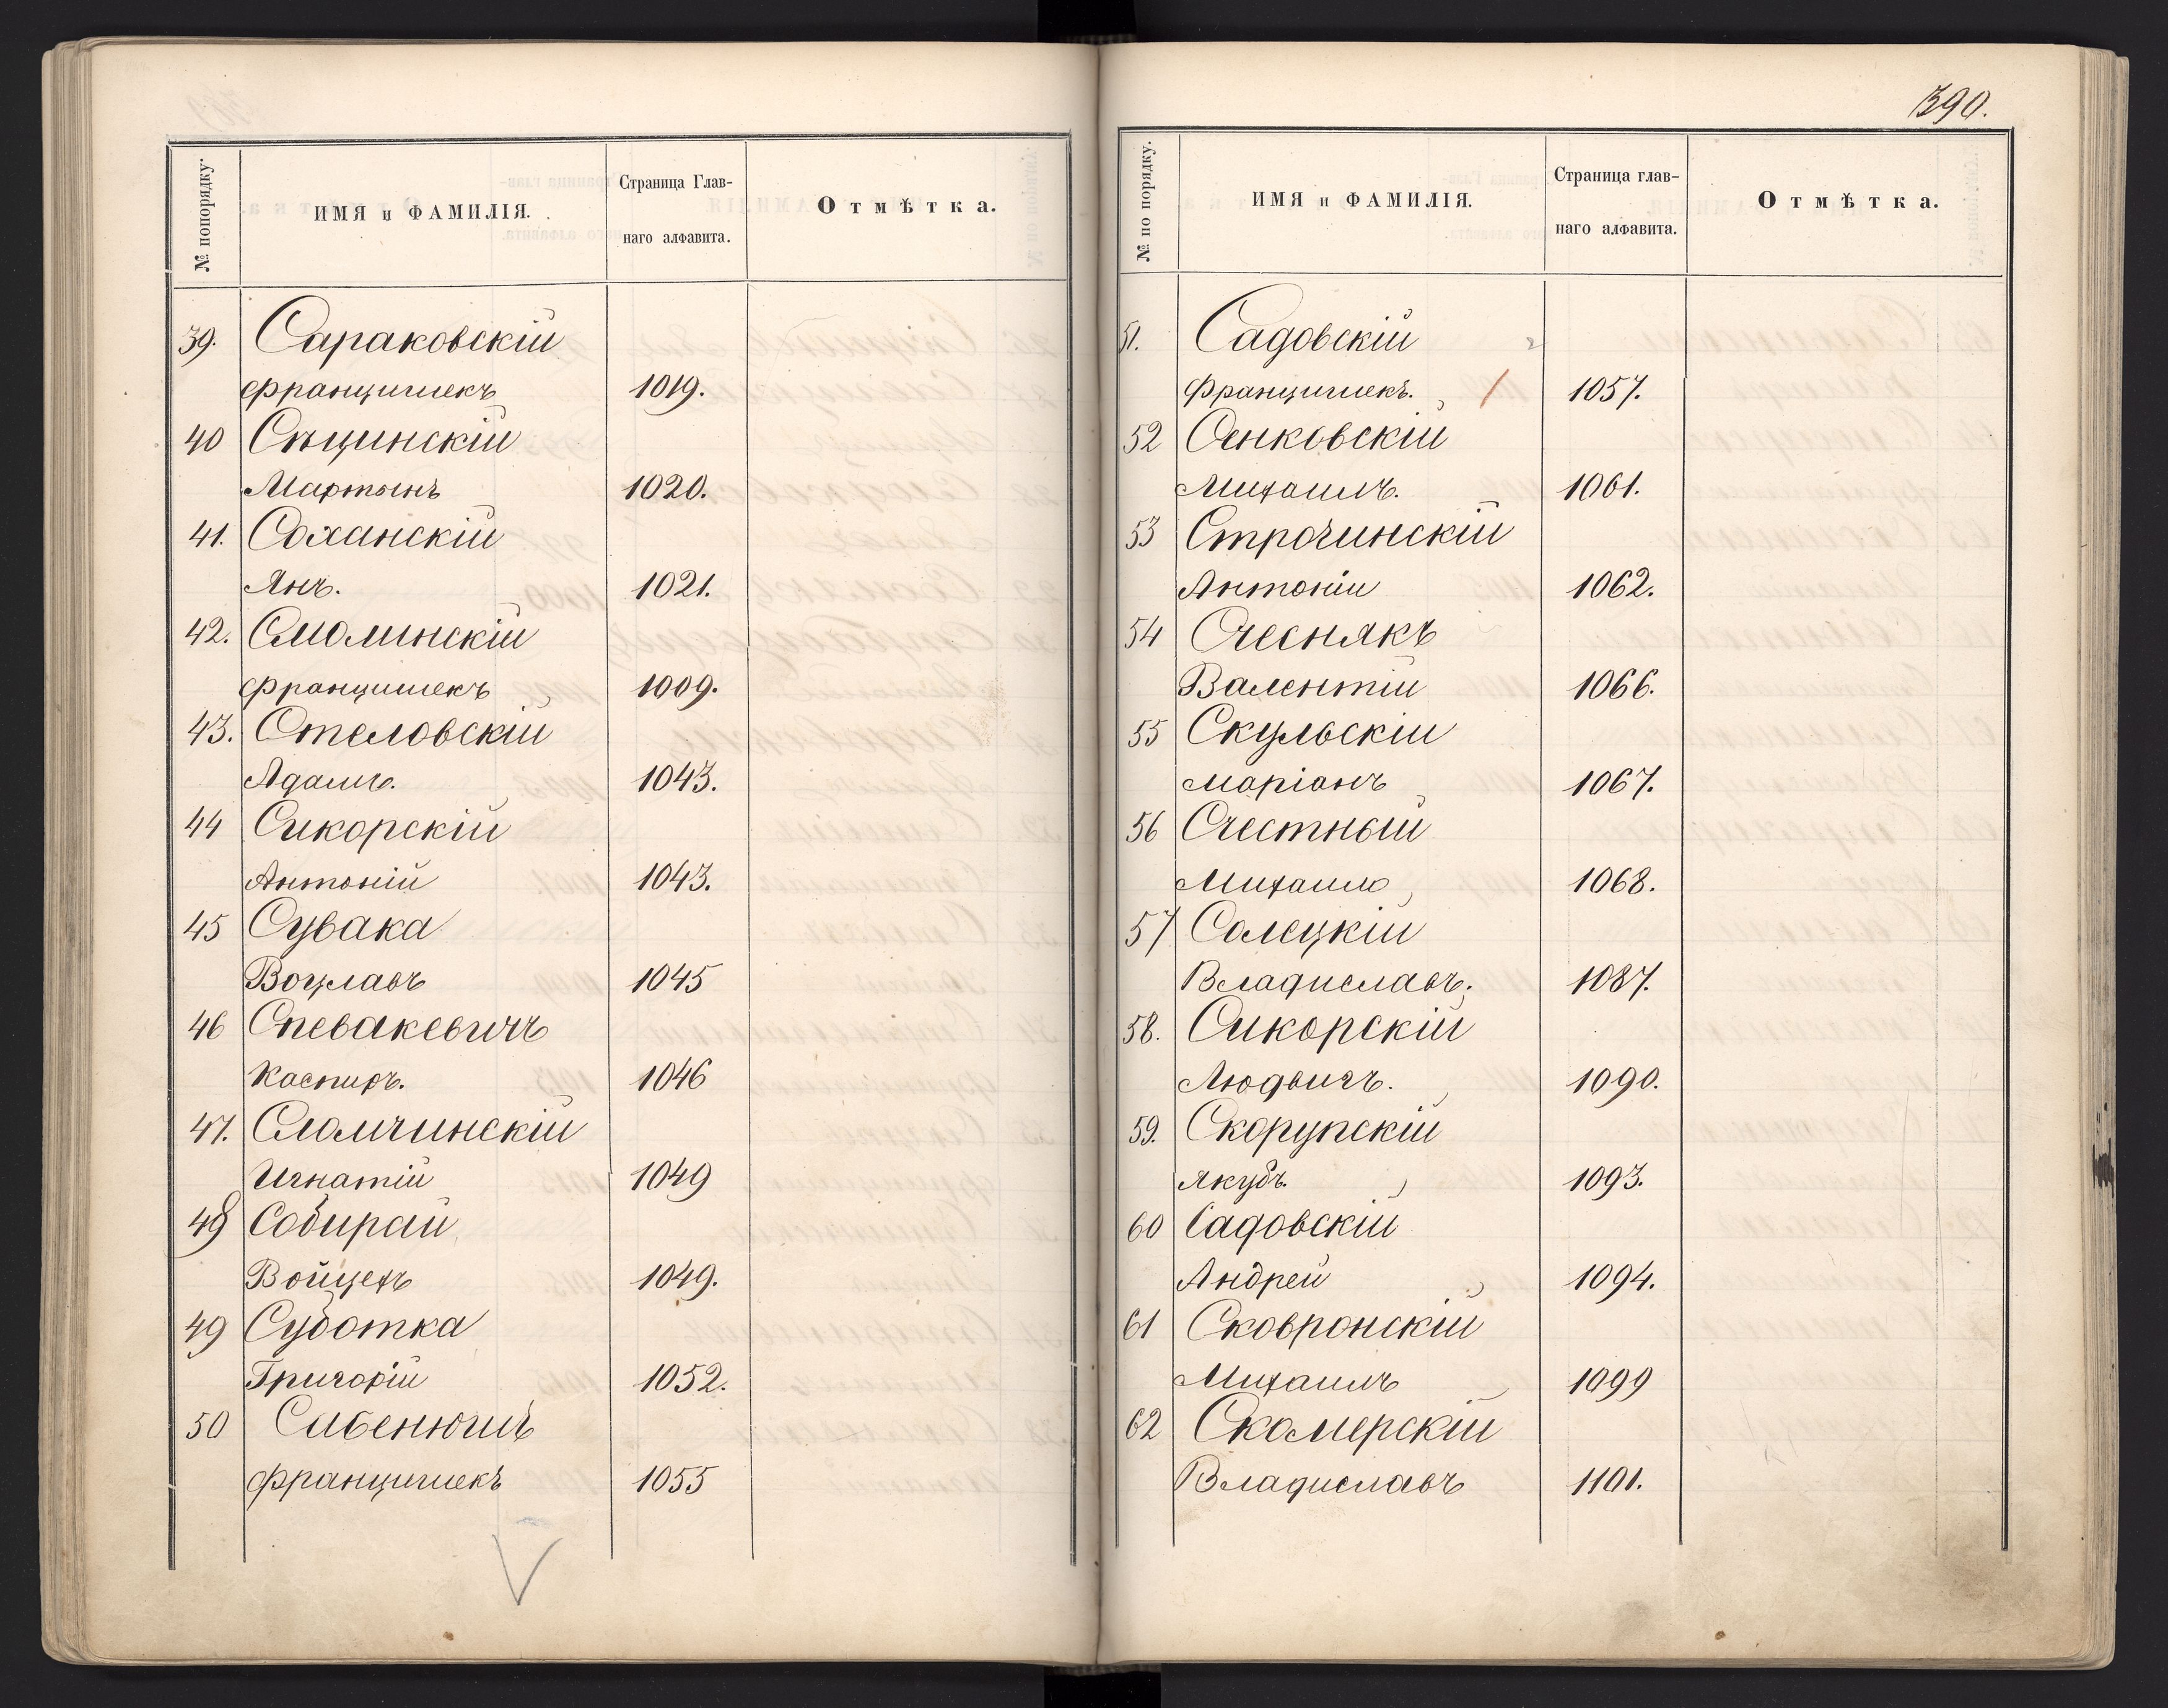 № попорядку.
ИМЯ и ФАМИЛІЯ.
Страница Глав-
наго алфавита.
Отмѣтка.
39. Сараковскій
Францишекъ 1019.
40 Сѣцинскій
Мартынъ 1020.
41. Соханскій
Янъ. 1021.
42. Смолинскій
Францишекъ 1009.
43. Стеловскій
Адамъ. 1043.
44 Сикорскій
Антоній 1043.
45 Сувака
Воцлавъ 1045
46 Спевакевичъ
Каспиръ. 1046
47. Сломчинскій
Игнатій 1049
48 Собирай
Войцехъ 1049.
49 Суботка
Григорій 1052.
50
Францишекъ 1055
390.
№ по порядку.
ИМЯ и ФАМИЛІЯ.
Страница глав-
наго алфавита.
Отмѣтка.
51. Садовскій
Францишекъ. 1057.
52 Сенковскій
Михаилъ. 1061.
53 Строчинскій
Антоній 1062.
54 Счеснякъ
Валентій 1066.
55 Скульскій
Маріанъ 1067.
56 Счестный
Михаилъ 1068.
57 Солецкій
Владиславъ. 1087.
58. Сикорскій
Людвигъ. 1090.
59. Скорупскій
Якубъ. 1093.
60 Садовскій
Андрей 1094.
61 Сковронскій
Михаилъ 1099
62 Скомерскій
Владиславъ 1101.